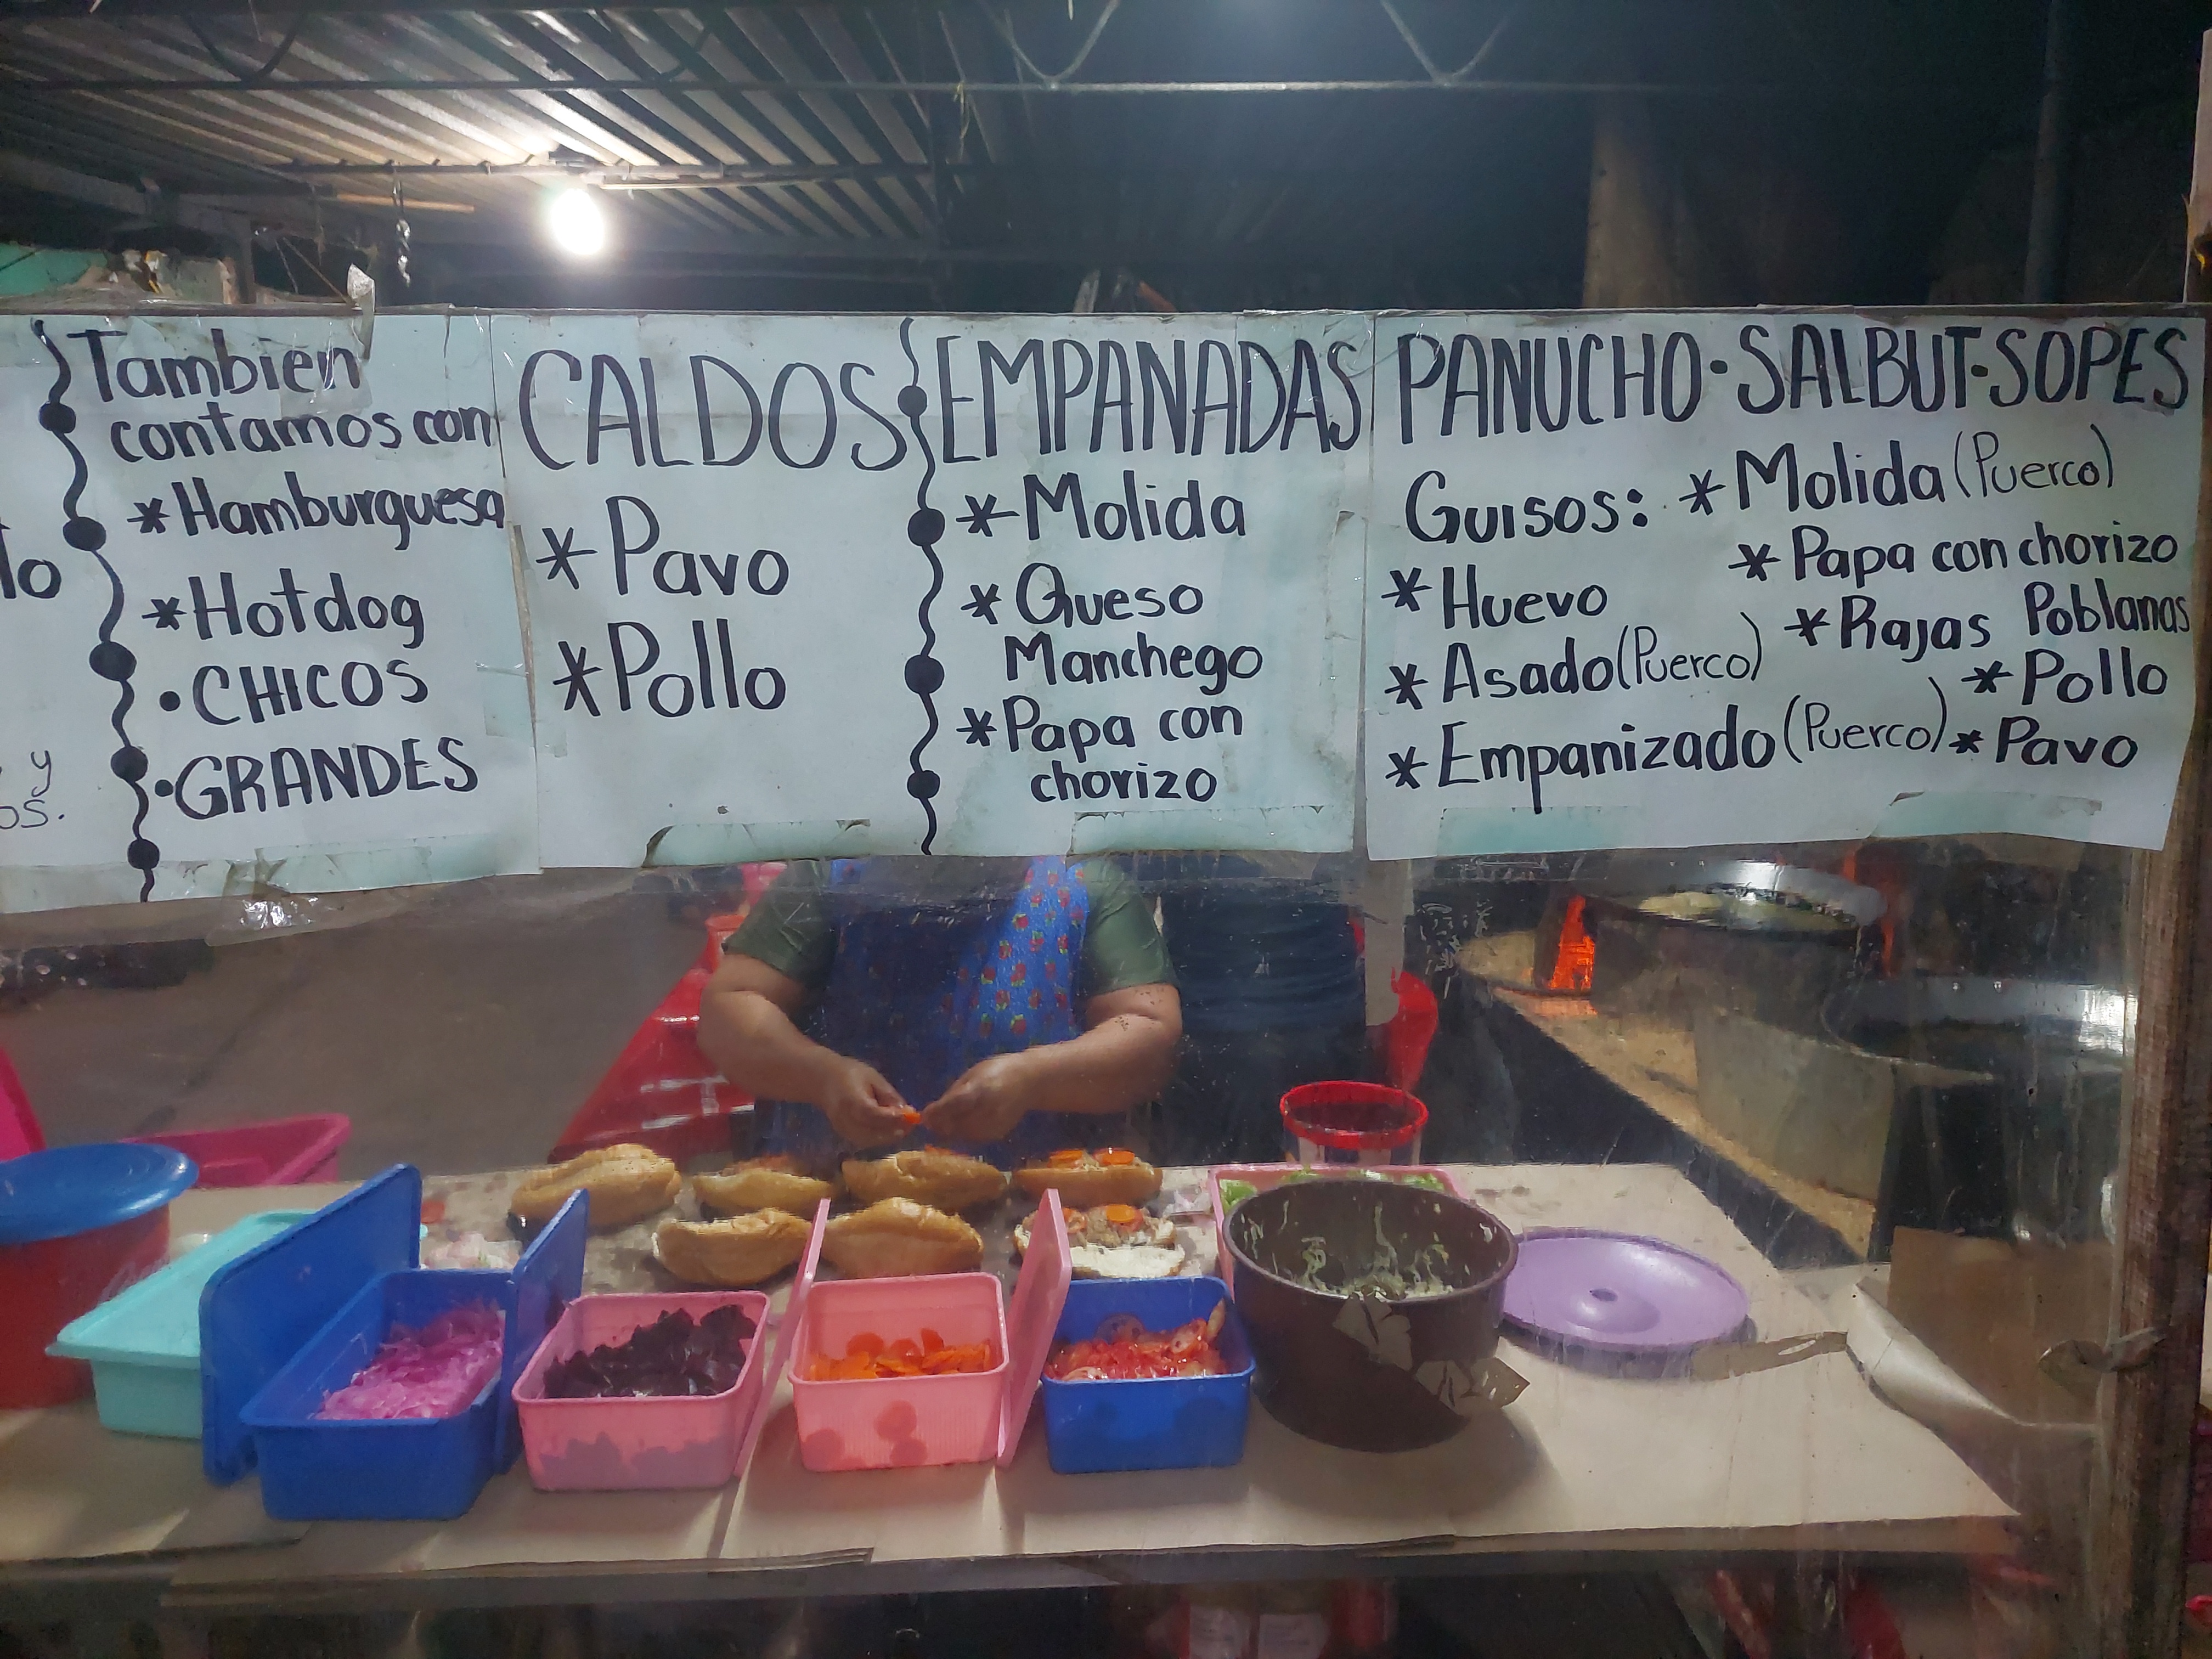 lo
y
os.
Tambien
contamos con
*Hamburguesa
*Hotdog
•CHICOS
•GRANDES
CALDOS
*Pavo
*Pollo
EMPANADAS
*Molida
*Queso
Manchego
*Papa con
chorizo
PANUCHO•SALBUT•SOPES
Guisos:
*Huevo
*Asado(Puerco)
*Empanizado(Puerco)
*Molida(Puerco)
*Papa con chorizo
*Rajas Poblanas
*Pollo
*Pavo